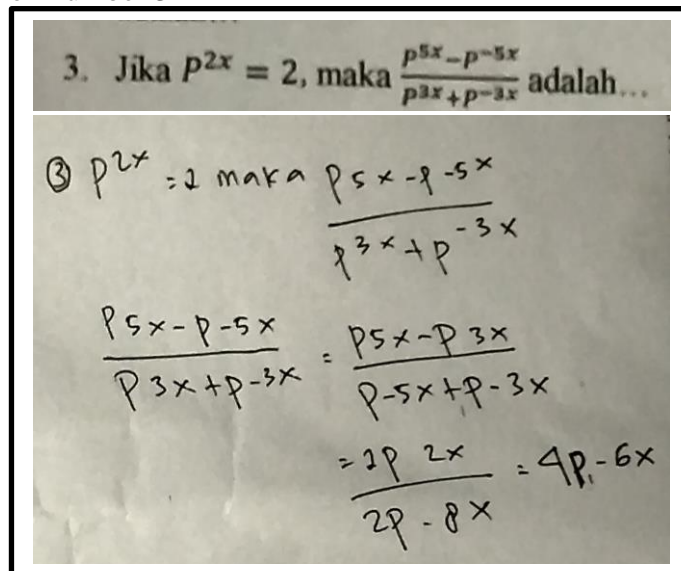 3. Jika P^{2x} = 2, maka \frac{P^{5x}-P^{-5x}}{P^{3x}+P^{-3x}} adalah...
③ P^{2x} = 2 maka \frac{P^{5x}-P^{-5x}}{P^{3x}+P^{-3x}}
\frac{P5x-P-5x}{P3x+P-3x} = \frac{P5x-P3x}{P-5x+P-3x}
= \frac{2P 2x}{2P-8x} = 4P-6x